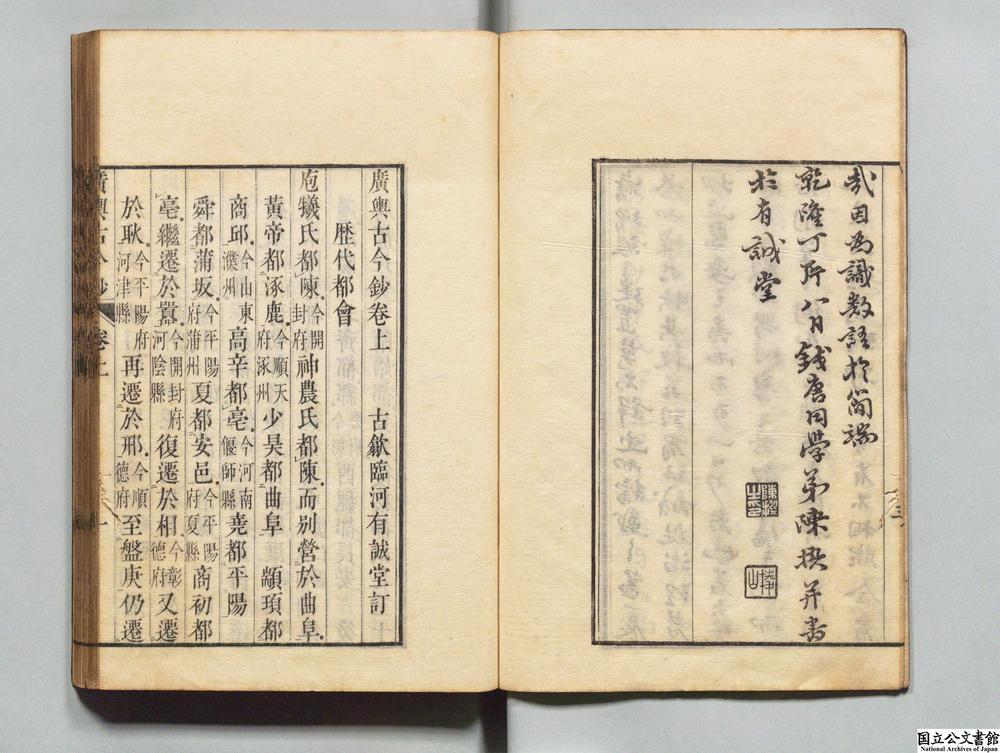 哉因為識數語於簡端
乾隆丁所八月錢唐同學弟陳撰并書
於有誠堂
陳撰之印
廣輿古今鈔卷上　古歙臨河有誠堂訂
歷代都會
庖犧氏都陳今開封府神農氏都陳而别營於曲阜
黃帝都涿鹿今順天府涿州少昊都曲阜　顓頊都
商邱今山東濮州高辛都亳今河南偃師縣堯都平陽
舜都蒲坂今平陽府蒲州夏都安邑今平陽府夏縣商初都
亳繼遷於囂今開封府河陰縣復遷於相今彰德府又遷
於耿今平陽府河津縣再遷於邢今順德府至盤庚仍遷
廣輿古今鈔　卷上　一
国立公文書館
National Archives of Japan